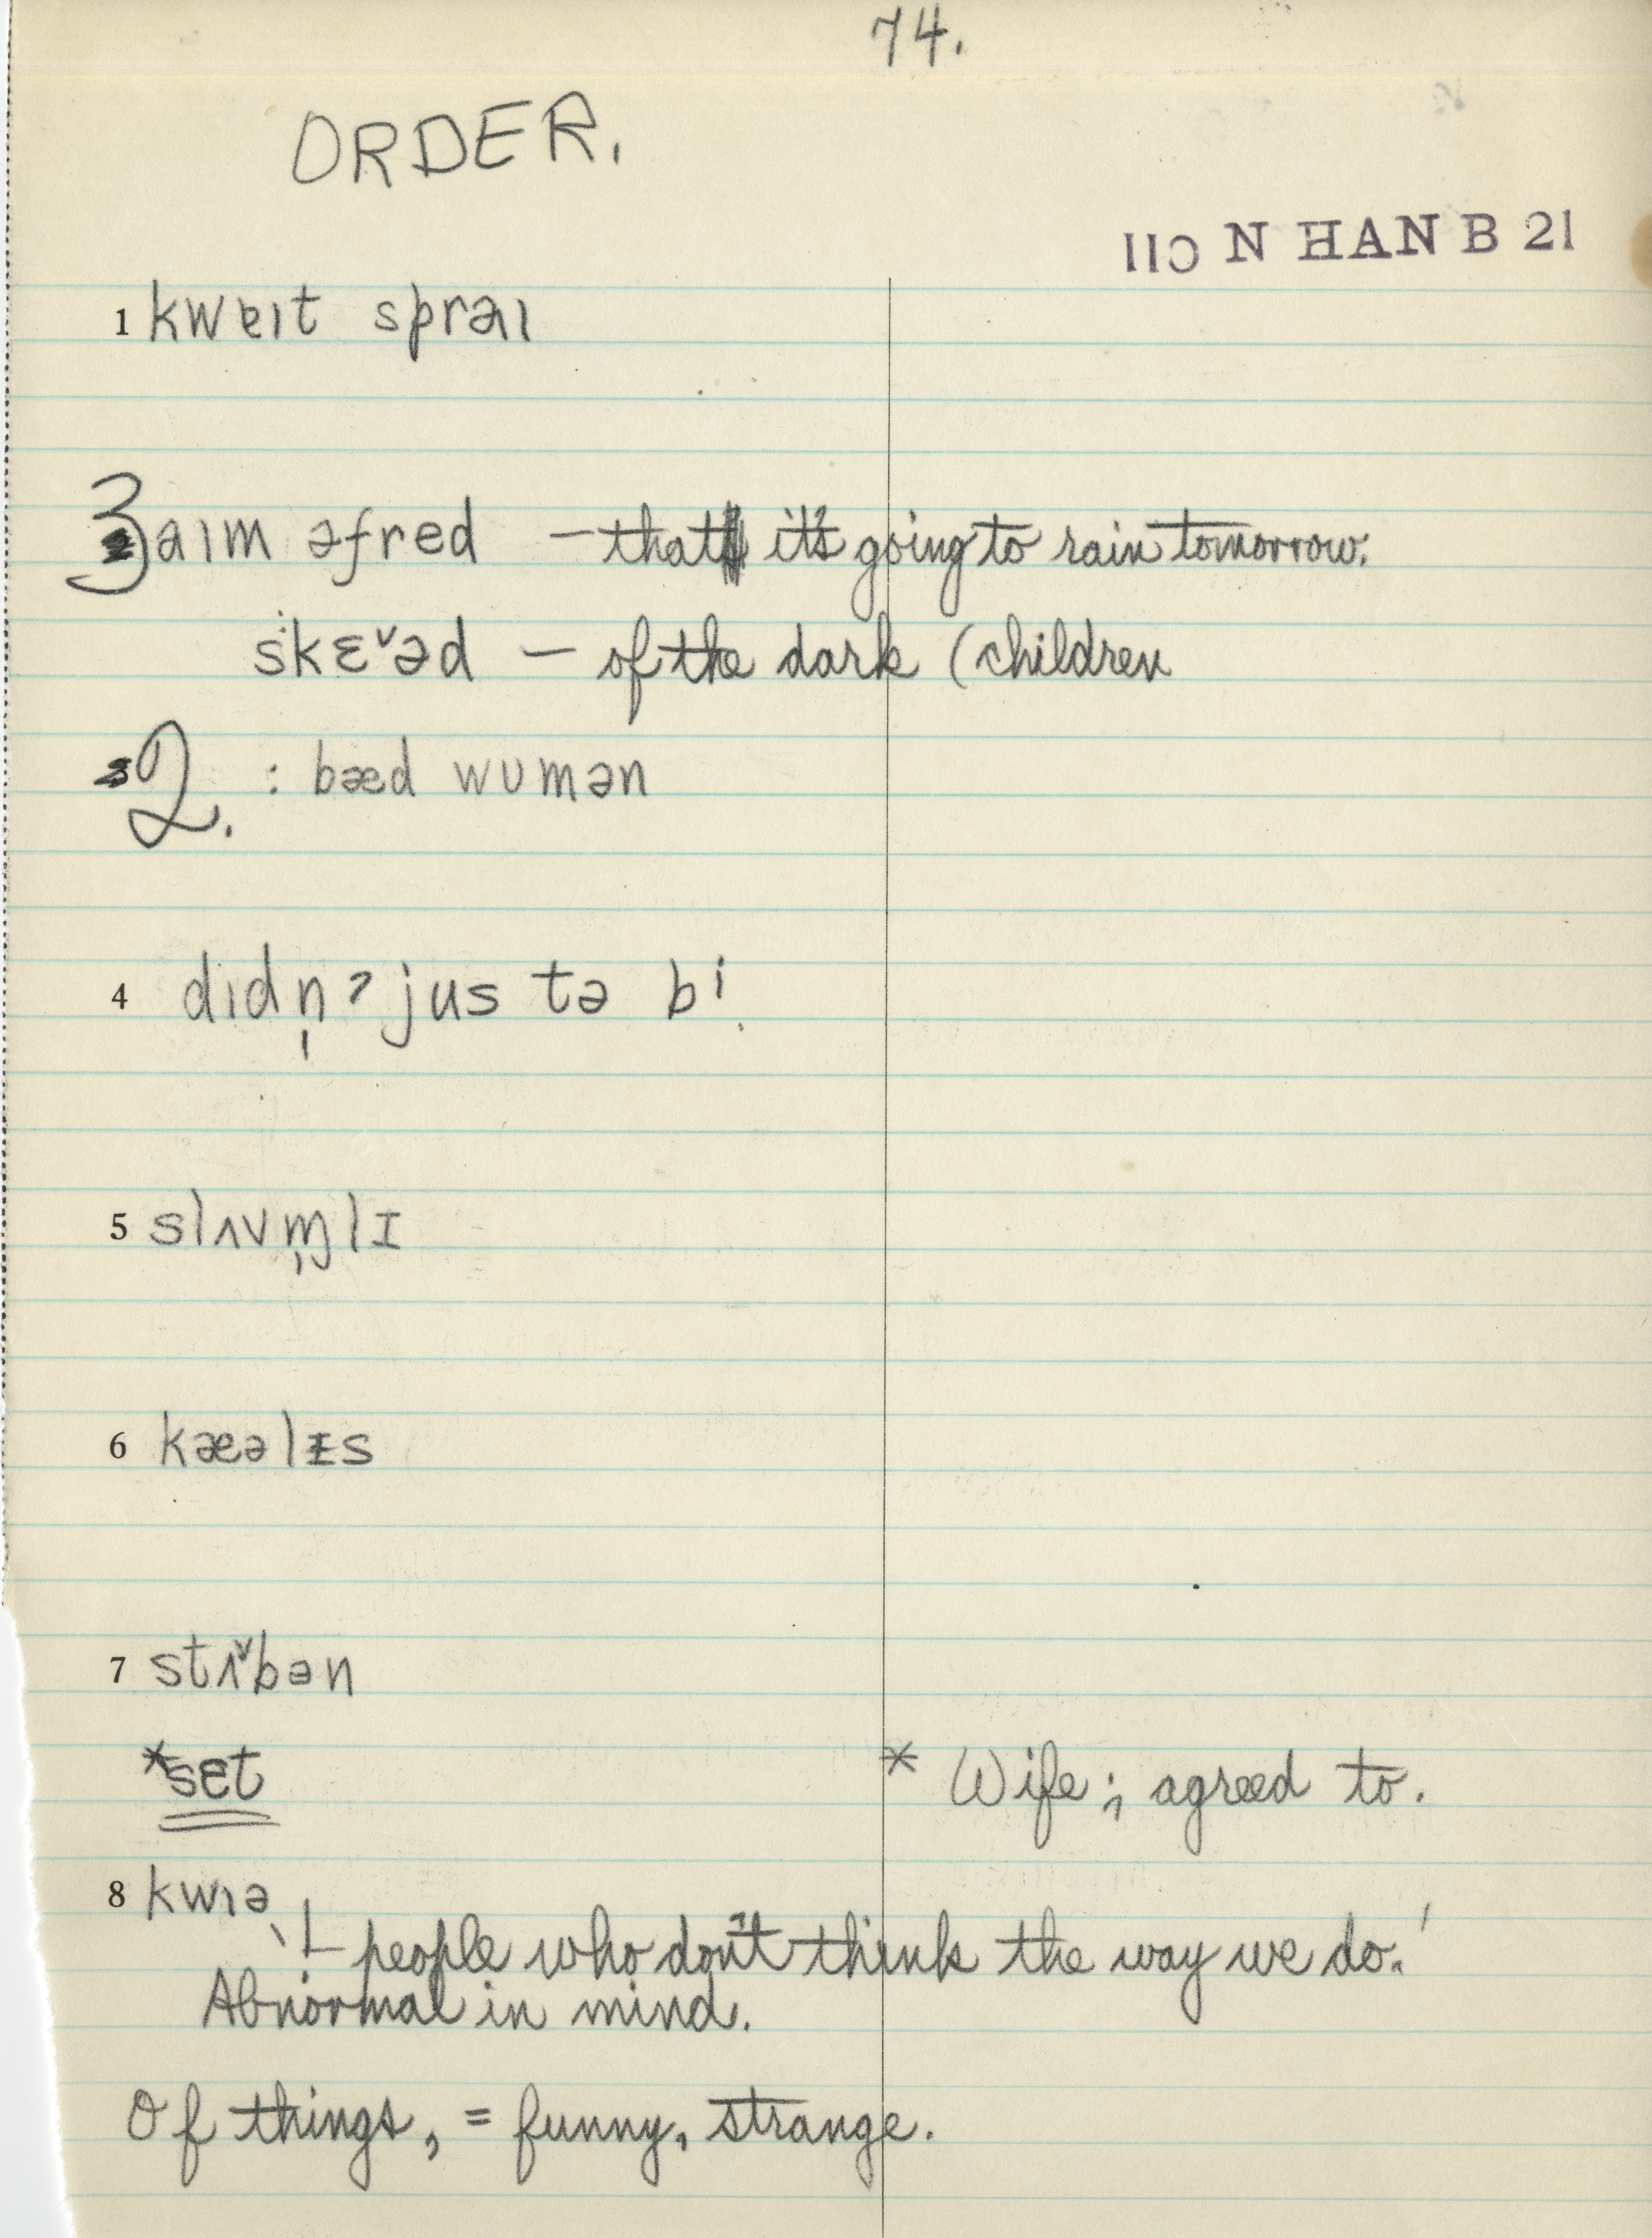 74.
ORDER.
110 N HAN B 21
1 kwɐɪt sprəɪ
3 aɪm əfred – that it's going to rain tomorrow.
skɛ˅əd – of the dark (children
2. : bæd wumən
4 dɪdn̩ʔ jus tə bi
5 slʌvm̩lɪ
6 kæəlɪs
7 stʌ˅bən
*sɛt
* Wife; agreed to.
8 kwɪə
\ !– people who don't think the way we do.'
Abnormal in mind.
Of things, = funny, strange.